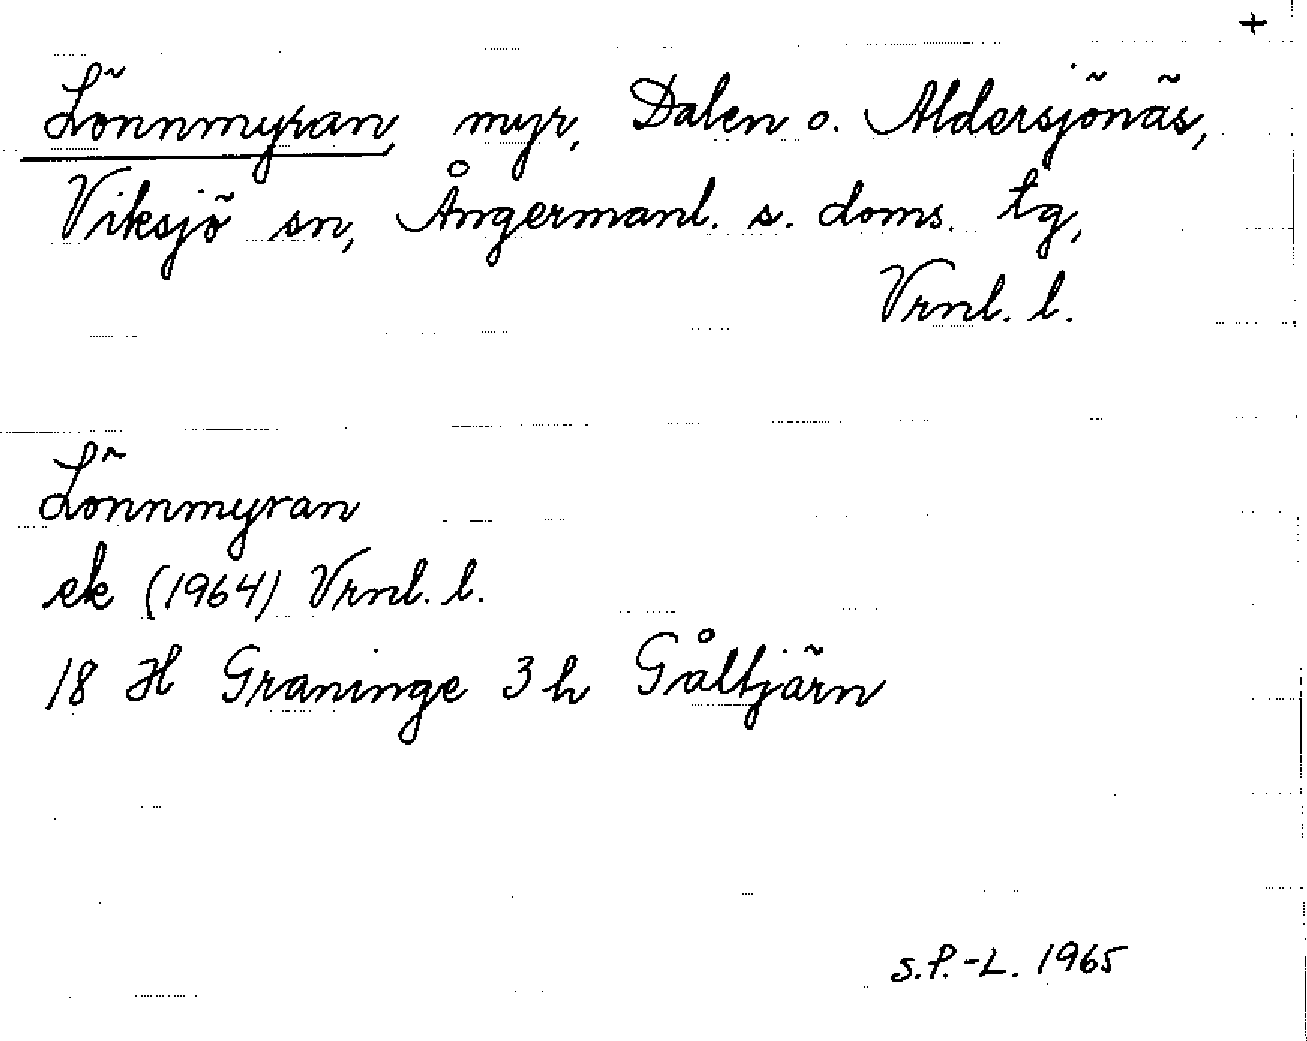 +
Lönnmyran, myr, Dalen o. Aldersjönäs,
Viksjö sn, Ångermanl. s. doms. tg,
Vrnl. l.
Lönnmyran
ek (1964) Vrnl. l.
18 H Graninge 3 h Gåltjärn
S.P.-L. 1965